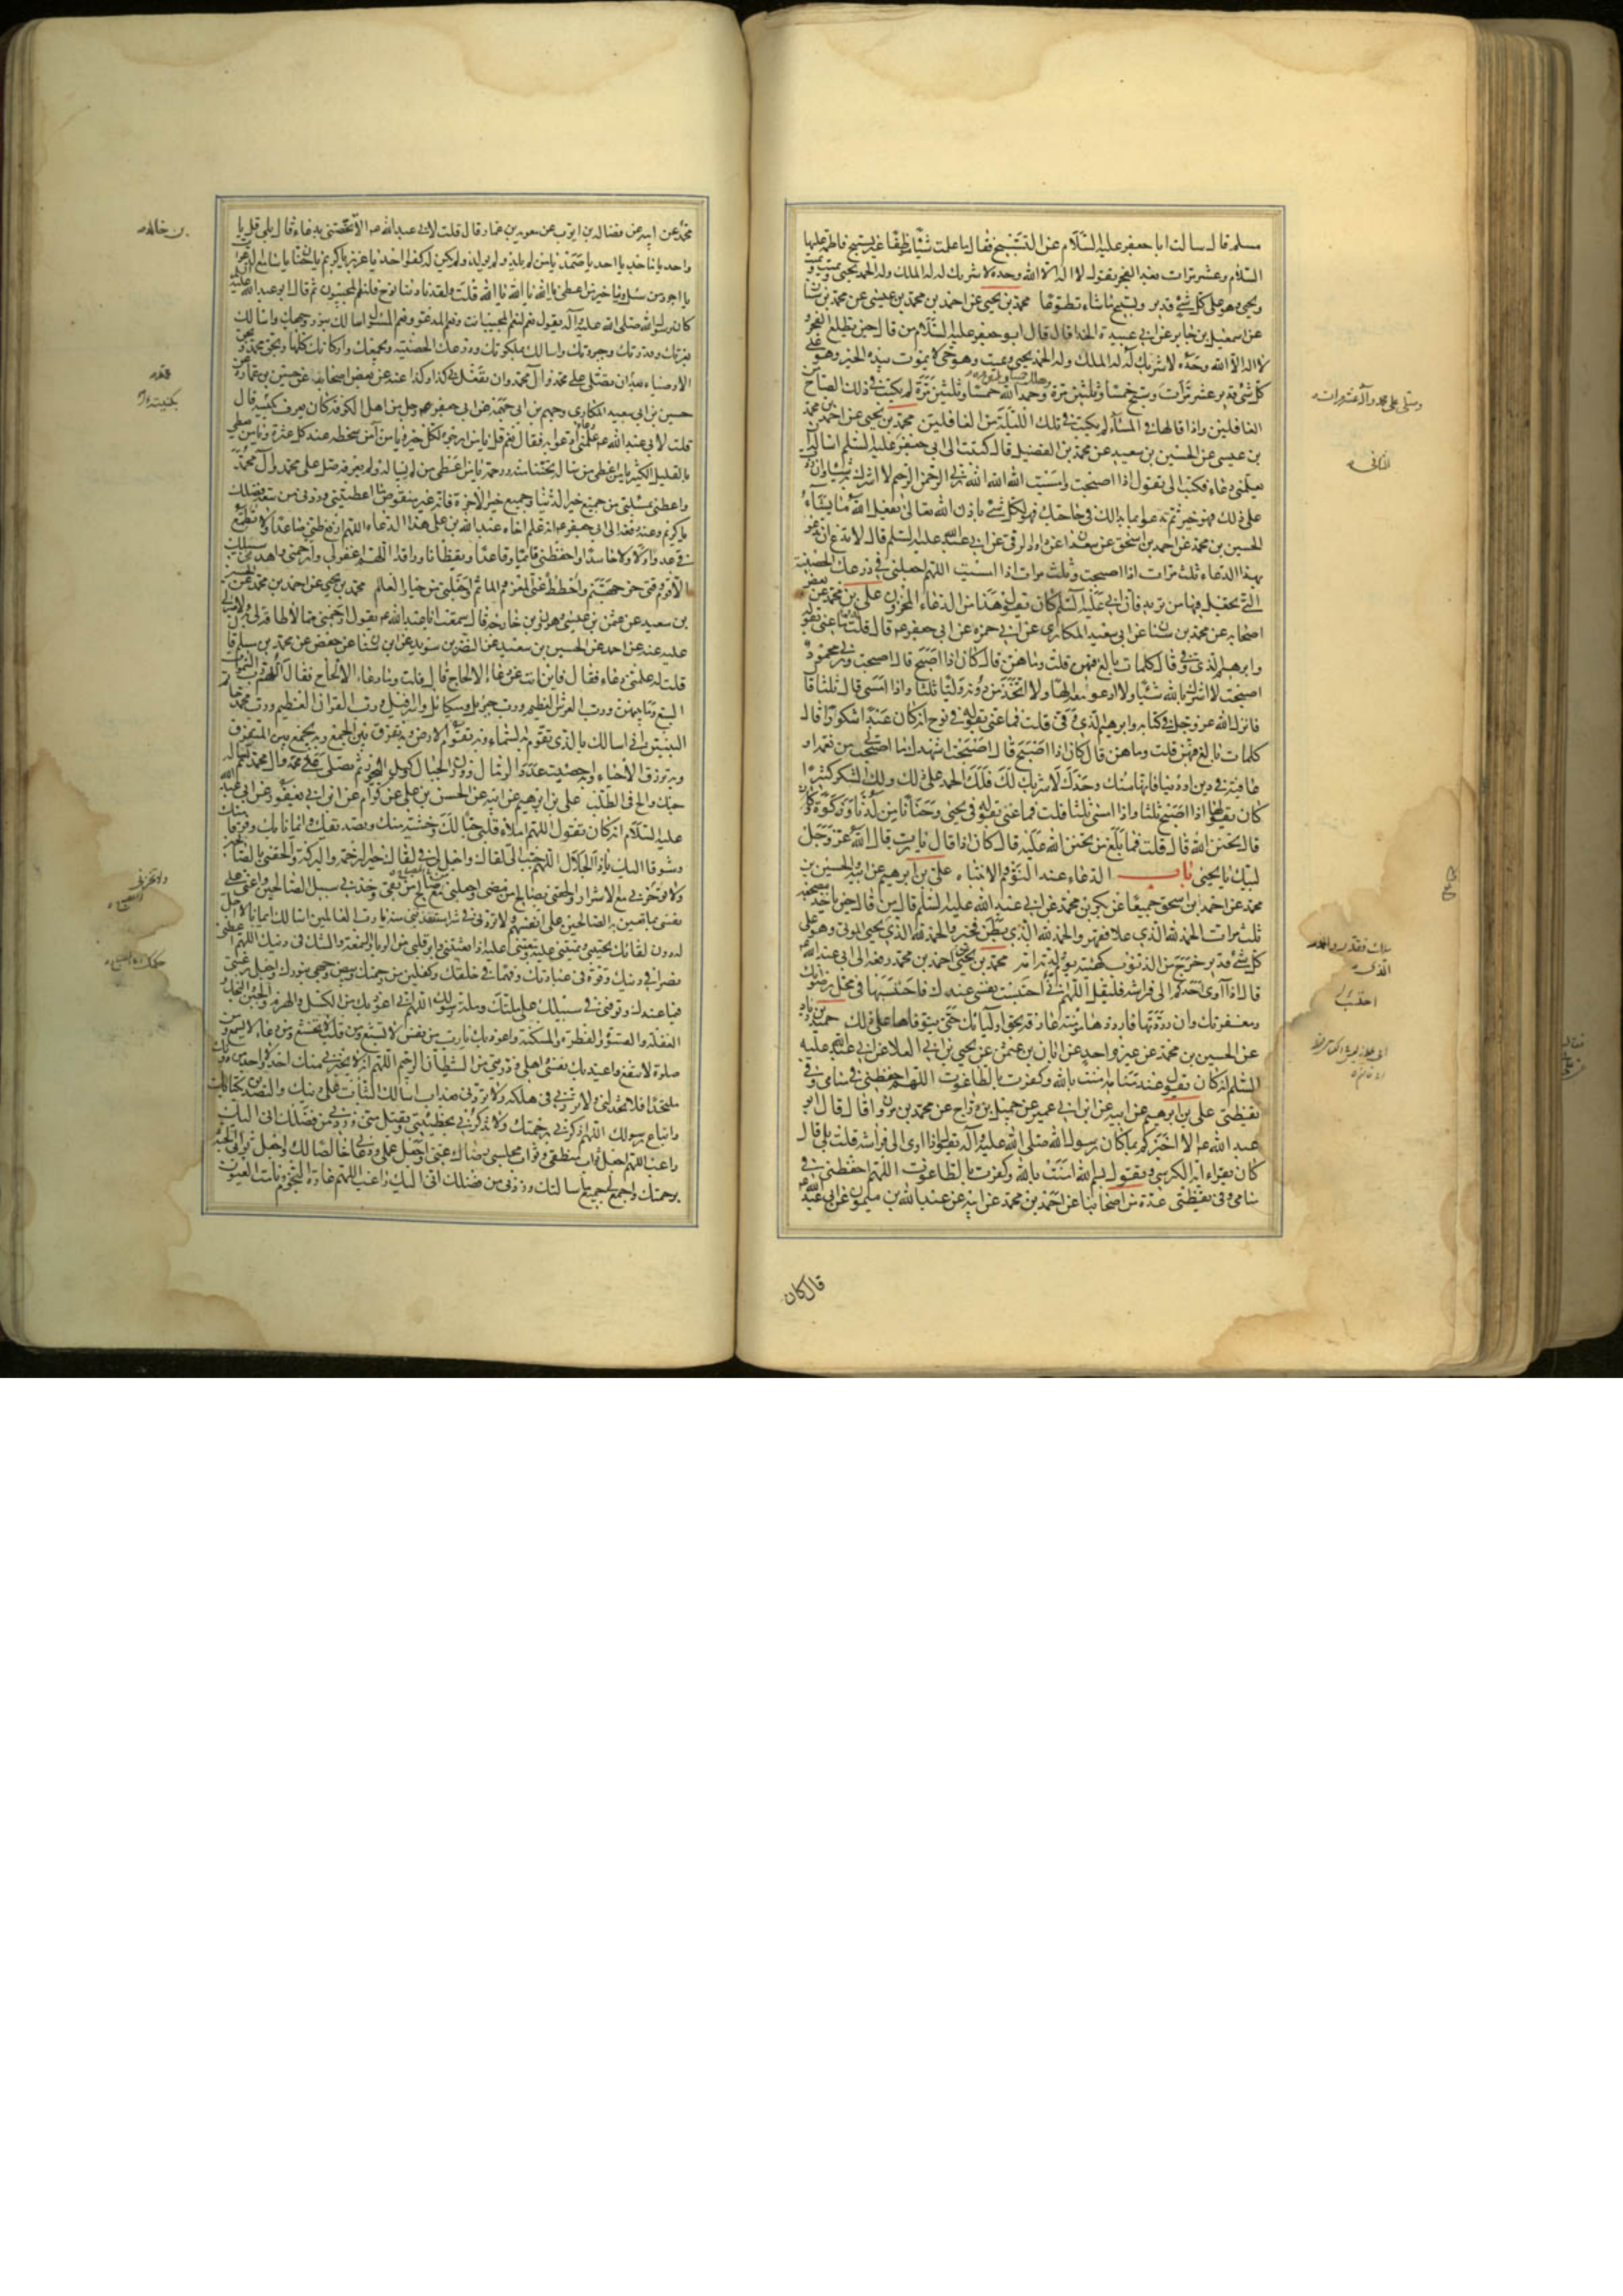 مسلم قال سالت ابا جعفر عليه السلام عن التسبيح فقال ما علمت شيئا موظفا غير تسبيح فاطمه عليها
السلام وعشر مرات بعد الفجر يقول لا اله الا الله وحده لا شريك له له الملك وله الحمد يحيى ويميت ويميت
ويحيى وهو على كل شئ قدير ويسبح ما شاء تطوعا محمد بن يحيى عن احمد بن محمد بن عيسى عن محمد بن سنان
عن اسمعيل بن جابر عن ابى عبيدة الحذا قال قال ابو جعفر عليه السلام من قال حين يطلع الفجر
لا اله الا الله وحده لا شريك له له الملك وله الحمد يحيى ويميت وهو حى لا يموت بيده الخير وهو على
كل شئ قدير عشر مرات وسبح خمسا وثلثين مرة وحمد الله خمسا وثلثين مرة لم يكتب فى ذلك الصباح من
الغافلين واذا قالها فى المساء لم يكتب فى تلك الليلة من الغافلين محمد بن يحيى عن احمد بن محمد
بن عيسى عن الحسين بن سعيد عن محمد بن الفضيل قال كتبت الى ابى جعفر عليه السلم اساله ان
يعلمنى دعاء فكتب الى تقول اذا اصبحت وامسيت الله الله الله ربى الرحمن الرحيم لا اشرك به شيئا وان زدت
على ذلك فهو خير ثم تدعو بما بدا لك فى حاجتك فهو لكل شئ باذن الله تعالى يفعل الله ما يشاء
الحسين بن محمد عن احمد بن اسحق عن سعدان عن داود الرقى عن ابى عبدالله عليه السلم قال لا تدع ان تدعو
بهذا الدعاء ثلث مرات اذا اصبحت وثلث مرات اذا امسيت اللهم اجعلنى فى درعك الحصينة
التى تجعل فيها من تريد فان ابى عليه السلم كان يقول هذا من الدعاء المخزون على بن محمد عن بعض
اصحابه عن محمد بن سنان عن ابى سعيد المكارى عن ابى حمزه عن ابى جعفر ع قال قلت ما عنى بقوله
وابرهيم الذى وفى قال كلمات بالغ فيهن قلت وما هن قال كان اذا اصبح قال اصبحت وربى محمود
اصبحت لا اشرك بالله شيئا ولا ادعو معه الها ولا اتخذ من دونه وليا ثلثا واذا امسى قال ثلثا قال
فانزل الله عز وجل فى كتابه وابرهيم الذى وفى قلت فما عنى بقوله فى نوح انه كان عبدا شكورا قال
كلمات بالغ فيهن قلت وما هن قال كان اذا اصبح قال اصبحت اشهدك ما اصبحت بى من نعمة او
عافية فى دين او دنيا فانها منك وحدك لا شريك لك فلك الحمد على ذلك ولك الشكر كثيرا
كان يقولها اذا اصبح ثلثا واذا امسى ثلثا قلت فما عنى بقوله فى يحيى وحنانا من لدنا وزكوة
قال تحنن الله قال قلت فما بلغ من تحنن الله عليه قال كان اذا قال يا رب قال الله عز وجل
لبيك يا يحيى باب الدعاء عند النوم والانتباه على بن ابرهيم عن ابيه والحسين بن
محمد عن احمد بن اسحق جميعا عن بكر بن محمد عن ابى عبد الله عليه السلم قال من قال حين ياخذ مضجعه
ثلث مرات الحمد لله الذى علا فقهر والحمد لله الذى بطن فخبر والحمد لله الذى يحيى الموتى وهو على
كل شئ قدير خرج من الذنوب كهيئة يوم ولدته امه محمد بن يحيى عن احمد بن محمد رفعه الى ابى عبد الله ع
قال اذا آوى احدكم الى فراشه فليقل اللهم انى احتبست نفسى عندك فاحتسبها فى محل رضوانك
ومغفرتك وان رددتها فارددها مؤمنة عارفة بحق اوليائك حتى تتوفاها على ذلك حميد بن زياد
عن الحسين بن محمد عن غير واحد عن ابان بن عثمن عن يحيى بن ابى العلا عن ابى عبدالله عليه
السلم انه كان يقول عند منامه امنت بالله وكفرت بالطاغوت اللهم احفظنى فى منامى وفى
يقظتى على بن ابرهيم عن ابيه عن ابن ابى عمير عن جميل بن دراج عن محمد بن مروان قال قال ابو
عبد الله ع الا اخبركم بما كان رسول الله صلى الله عليه وآله يقول اذا اوى الى فراشه قلت بلى قال
كان يقراء اية الكرسى ويقول بسم الله امنت بالله وكفرت بالطاغوت اللهم احفظنى فى
منامى وفى يقظتى عدة من اصحابنا عن احمد بن محمد عن ابيه عن عبد الله بن ميمون عن ابى عبدالله ع
قال كان
وصلى على محمد وآله عشر مرات
ملك فقدر والحمد
الذى
احتسب
محمد عن ابيه عن فضاله بن ايوب عن معويه بن عمار قال قلت لابى عبد الله ع الا تخصنى بدعاء قال بلى قل يا
واحد يا ماجد يا احد يا صمد يا من لم يلد ولم يولد ولم يكن له كفوا احد يا عزيز يا كريم يا حنان يا سامع الدعوات
يا اجود من سئل ويا خير من اعطى يا الله يا الله يا الله قلت ولقد نادينا نوح فلنعم المجيبون ثم قال ابو عبد الله عليه
كان رسول الله صلى الله عليه وآله يقول نعم لنعم المجيب انت ونعم المدعو ونعم المسئول اسالك بنور وجهك واسالك
بعزتك وقدرتك وجبروتك واسالك بملكوتك ودرعك الحصينة وبجمعك واركانك كلها وبحق محمد وبحق
الاوصياء بعد محمد ان تصلى على محمد وال محمد وان تفعل بى كذا وكذا عنه عن بعض اصحابه عن حسين بن عمارة عن
حسين بن ابى سعيد المكارى وجهم بن ابى جهمة عن ابى جعفر رجل من اهل الكوفة كان يعرف بكنيته قال
قلت لابى عبد الله ع علمنى دعاء ادعو به فقال نعم قل يا من ارجوه لكل خير ويا من آمن سخطه عند كل عثرة ويا من يعطى
بالقليل الكثير يا من اعطى من ساله تحننا منه ورحمة يا من اعطى من لم يساله ولم يعرفه صل على محمد وآل محمد
واعطنى بمسئلتى من جميع خير الدنيا وجميع خير الاخرة فانه غير منقوص ما اعطيتنى وزدنى من سعة فضلك
يا كريم وعنه رفعه الى ابى جعفر ع انه علم اخاه عبد الله بن على هذا الدعاء اللهم ارفع ظنى صاعدا ولا تطمع
فى عدوا ولا حاسدا واحفظنى قائما وقاعدا ويقظانا وراقدا اللهم اغفر لى وارحمنى واهدنى سبيلك
الاقوم وقنى حر جهنم واحطط عنى المغرم والماثم واجعلنى من خيار العالم محمد بن يحيى عن احمد بن محمد عن الحسين
بن سعيد عن عثمن بن عيسى وهرون بن خارجه قال سمعت ابا عبد الله ع يقول ارحمنى مما لا طاقة لى به ولا صبر لى
عليه عنه عن احمد عن الحسين بن سعيد عن النضر بن سويد عن ابن سنان عن حفص عن محمد بن مسلم قال
قلت له علمنى دعاء فقال فاين انت عن دعاء الالحاح قال قلت وما دعاء الالحاح فقال اللهم رب السموات
السبع وما بينهن ورب العرش العظيم ورب جبرئيل وميكائيل واسرافيل ورب القران العظيم ورب محمد خاتم
النبيين انى اسالك بالذى تقوم به السماء وبه تقوم الارض وبه تفرق بين الجمع وبه تجمع بين المتفرق
وبه ترزق الاحياء وبه احصيت عدد الرمال ووزن الجبال وكيل البحور ثم تصلى على محمد وال محمد ثم تساله
حاجتك والح فى الطلب على بن ابرهيم عن ابيه عن الحسن بن على عن كرام عن ابن ابى يعفور عن ابى عبد الله
عليه السلام انه كان يقول اللهم املاء قلبى حبا لك وخشية منك وتصديقا وايمانا بك وفرقا منك
وشوقا اليك يا ذا الجلال اللهم حبب الى لقاءك واجعل لى فى لقائك خير الرحمة والبركة والحقنى بالصالحين
ولا تؤخرنى مع الاشرار والحقنى بصالح من مضى واجعلنى مع صالح من بقى وخذ بى سبيل الصالحين واعنى على
نفسى بما تعين به الصالحين على انفسهم ولا تردنى فى شر استنقذتنى منه يا رب العالمين اسالك ايمانا لا اجل
له دون لقائك تحيينى وتميتنى عليه وتبعثنى عليه اذا بعثتنى وابرء قلبى من الريا والسمعة والشك فى دينك اللهم اعطنى
نصرا فى دينك وقوة فى عبادتك وفهما فى خلقك وكفلين من رحمتك وبيض وجهى بنورك واجعل رغبتى
فيما عندك وتوفنى فى سبيلك على ملتك وملة رسولك اللهم انى اعوذ بك من الكسل والهرم والجبن والبخل و
الغفلة والقسوة والفطرة والمسكنة واعوذ بك يا رب من نفس لا تشبع ومن قلب لا يخشع ومن دعاء لا يسمع ومن
صلوة لا تنفع واعيذ بك نفسى واهلى وذريتى من الشيطان الرجيم اللهم انه لا يجيرنى منك احد ولا اجد من دونك
ملتحدا فلا تخذلنى ولا تردنى فى هلكه ولا تردنى بعذاب اسالك الثبات على دينك والتصديق بكتابك
واتباع رسولك اللهم اذكرنى برحمتك ولا تذكرنى بخطيئتى وتقبل منى وزدنى من فضلك انى اليك
راغب اللهم اجعل ثواب منطقى وثواب مجلسى رضاك عنى واجعل عملى ودعائى خالصا لك واجعل ثوابى الجنة
برحمتك واجمع لى جميع ما سالتك وزدنى من فضلك انى اليك راغب اللهم غارت النجوم ونامت العيون
بن خالد